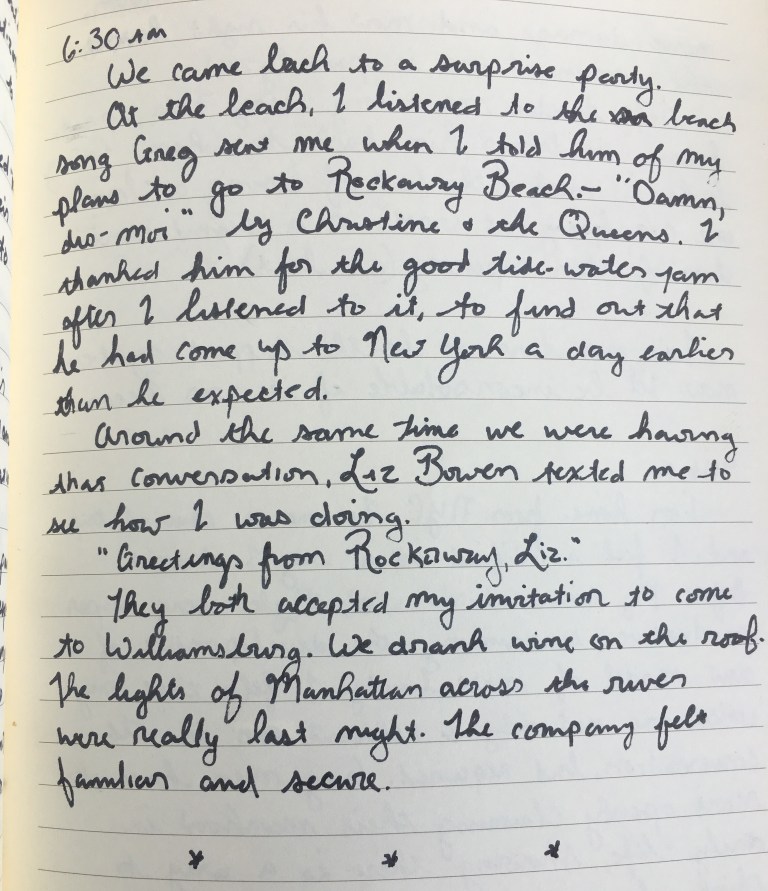 6:30 AM
We came back to a surprise party.
At the beach, I listened to the beach
song Greg sent me when I told him of my
plans to go to Rockaway Beach.– "Damn,
dis-moi" by Christine & the Queens. I
thanked him for the good tide-water jam
after I listened to it, to find out that
he had come up to New York a day earlier
than he expected.
Around the same time we were having
that conversation, Liz Bowen texted me to
see how I was doing.
"Greetings from Rockaway, Liz."
They both accepted my invitation to come
to Williamsburg. We drank wine on the roof.
The lights of Manhattan across the river
were really last night. The company felt
familiar and secure.
* * *